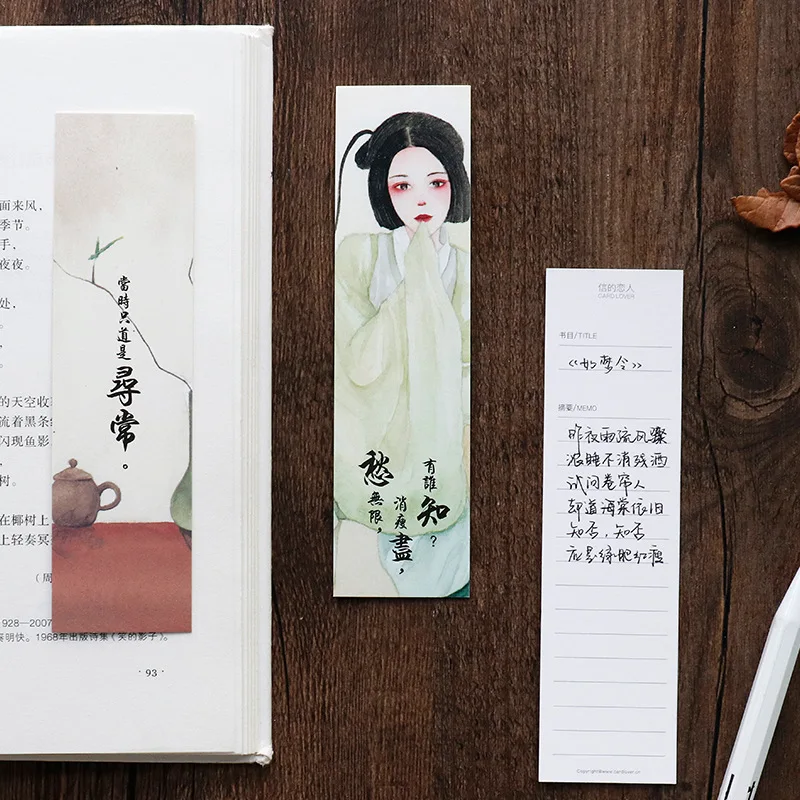 面来风，
季节。
手，
夜夜。
处，
的天空收
流着黑条
闪现鱼影
树。
在椰树上
上轻奏冥
（周
928—2007
奏明快。1968年出版诗集《笑的影子》。
· 93 ·
當時只道是
尋常。
有誰
知？
消瘦
盡，
愁
無限，
信的恋人
CARD LOVER
书目/TITLE
《如梦令》
摘要/MEMO
昨夜雨疏风骤
浓睡不消残酒
试问卷帘人
却道海棠依旧
知否，知否
应是绿肥红瘦